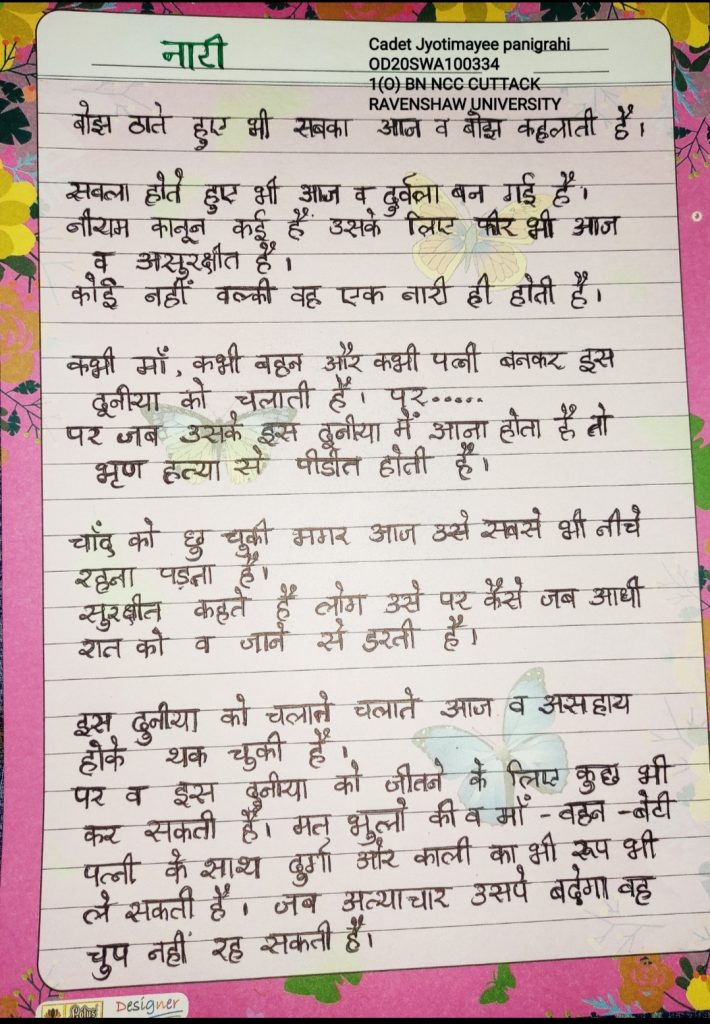 नारी
Cadet Jyotimayee panigrahi
OD20SWA100334
1(O) BN NCC CUTTACK
RAVENSHAW UNIVERSITY
बोझ ठाते हुए भी सबका आज व बोझ कहलाती है।
सबला होते हुए भी आज व दुर्वला बन गई है।
नीयम कानून कई हैं उसके लिए फीर भी आज
व असुरक्षीत है।
कोई नहीं वल्की वह एक नारी ही होती है।
कभी माँ, कभी बहन और कभी पत्नी बनकर इस
दूनीया को चलाती है। पर.....
पर जब उसके इस दूनीया में आना होता है तो
भृण हत्या से पीडीत होती है।
चाँद को छु चुकी मगर आज उसे सबसे भी नीचे
रहना पड़ता है।
सुरक्षीत कहते हैं लोग उसे पर कैसे जब आधी
रात को व जाने से डरती है।
इस दुनीया को चलाते चलाते आज व असहाय
होके थक चुकी है।
पर व इस दूनीया को जीतने के लिए कुछ भी
कर सकती है। मत भुलो की व माँ - वहन - बेटी
पत्नी के साथ दुर्गा और काली का भी रूप भी
ले सकती है। जब अत्याचार उसपे बढ़ेगा वह
चुप नहीं रह सकती है।
Designer